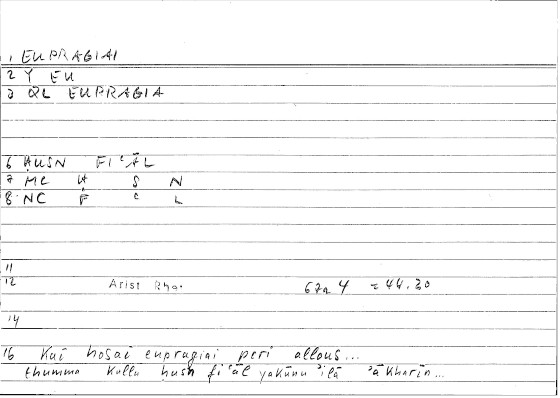 1 EUPRAGIAI
2 Y EU
3 QL EUPRAGIA
6 ḤUSN FIʿĀL
7 MC Ḥ S N
8 NC F ʿ L
11
12 Arist Rhet 67a 4 = 44.20
14
16 Kai hosai eupragiai peri allous...
thumma kullu ḥusn fiʿāl yakūnu ʾilā ʾākharīn...